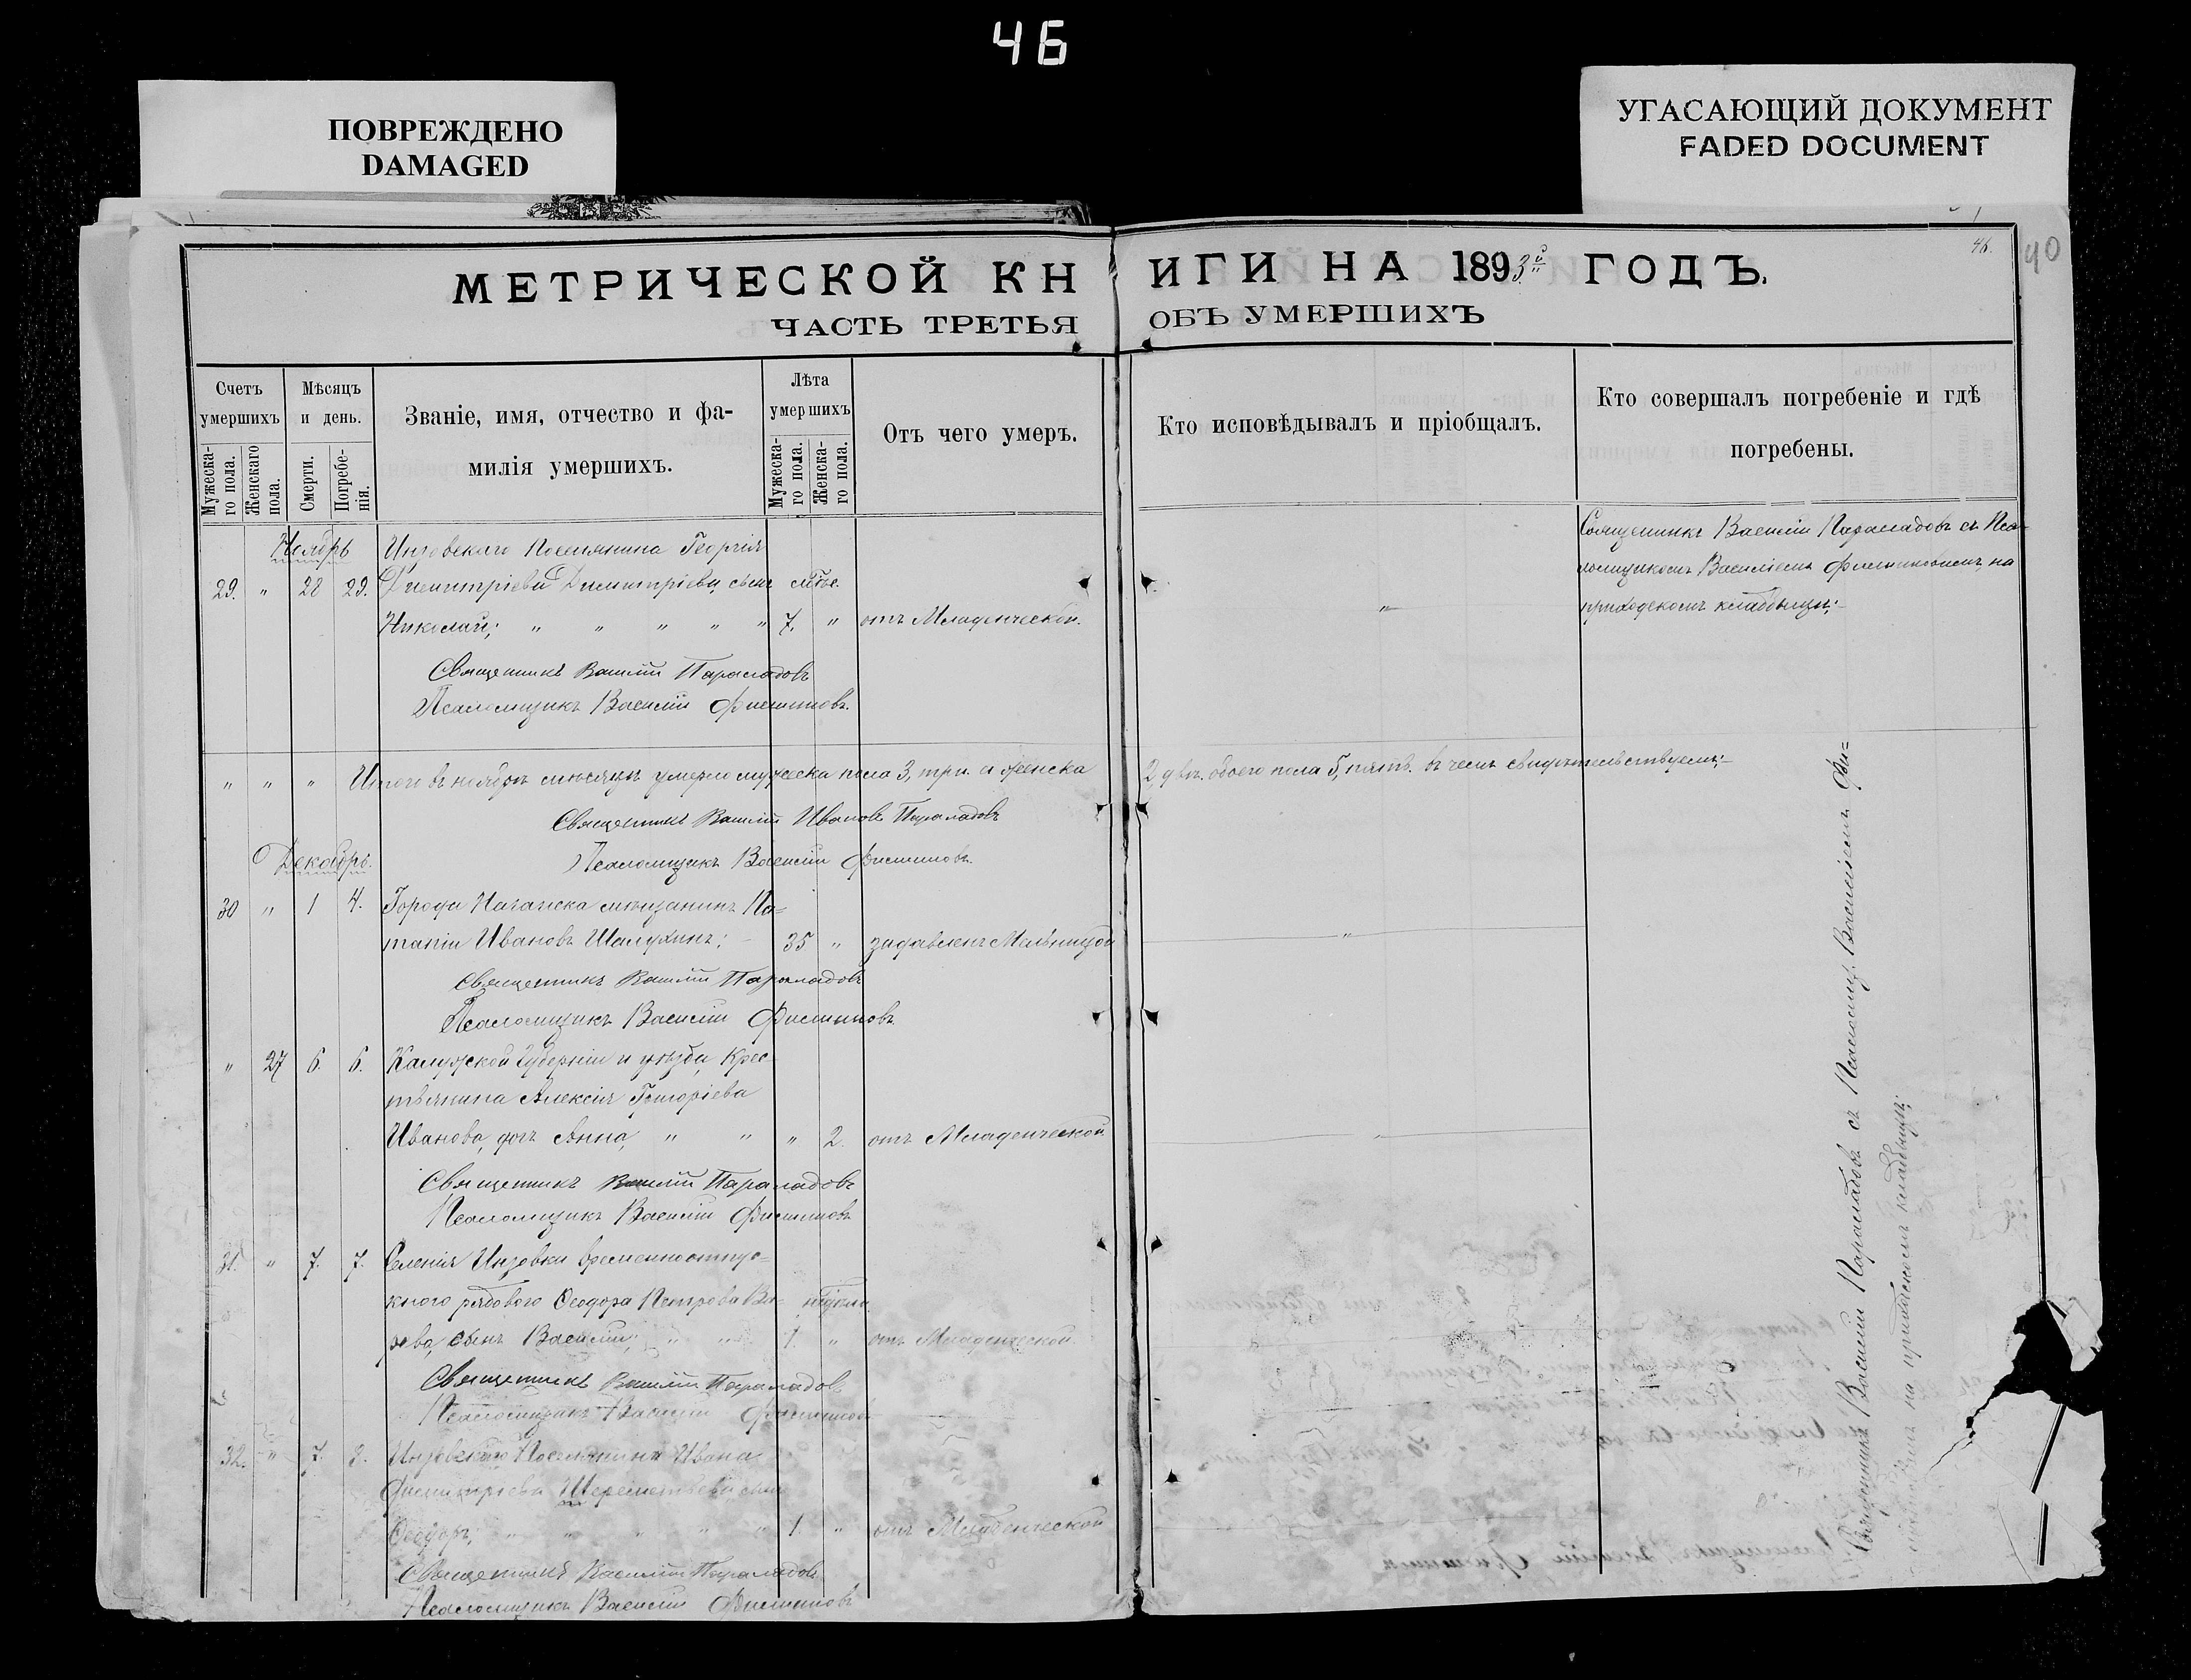 46
ПОВРЕЖДЕНО
DAMAGED
УГАСАЮЩИЙ ДОКУМЕНТ
FADED DOCUMENT
46.
40
МЕТРИЧЕСКОЙ КНИГИ НА 1893й ГОДЪ.
ЧАСТЬ ТРЕТЬЯ ОБЪ УМЕРШИХЪ
Счетъ умершихъ
Мужеска-го пола.
Женскаго пола.
Мѣсяцъ и день.
Смерти.
Погребе-нія.
Званіе, имя, отчество и фа-
милія умершихъ.
Лѣта умершихъ
Мужеска-го пола.
Женска-го пола.
Отъ чего умеръ.
Кто исповѣдывалъ и пріобщалъ.
Кто совершалъ погребеніе и гдѣ
погребены.
Ноябрь Инзовскаго Поселянина Георгія Священникъ Василій Парамадовъ съ Пса-
29. " 28 29. Димитріева Димитріева, сынъ ломщикомъ Василіемъ на
Николай; " " " " " 7. " отъ Младенческой. " приходскомъ кладбищѣ;-
Священникъ Василій Парамадовъ
Псаломщикъ Василій
" " " Итого въ ноябрѣ мѣсяцѣ умерло мужеска пола 3, три. а женска 2, двѣ. обоего пола 5, пять. въ чемъ свидѣтельствуемъ;-
Священникъ Василій Ивановъ Парамадовъ
Декабрь. Псаломщикъ Василій
30 " 1 4. Города мѣщанинъ По-
тапій Ивановъ Шалухинъ; - 35 " задавленъ Мельницой "
Священникъ Василій Парамадовъ
Псаломщикъ Василій
" 27 6. 6. Калужской Губерніи и уѣзда, Крес-
тьянина Алексія Григоріева
Иванова, дочь Анна, " " " 2. отъ Младенческой "
Священникъ Василій Парамадовъ
Псаломщикъ Василій
31. " 7. 7. Селенія Инзовки временноотпус-
кного рядового Ѳеодора Петрова
сынъ Василій; " " 1. " отъ Младенческой.
Священникъ Василій Парамадовъ
Псаломщикъ Василій
32. " 7. 8. Инзовскаго Поселянина Ивана
Димитріева Шереметьева сынъ
Ѳеодоръ; " " " " " 1. " отъ Младенческой
Священникъ Василій Парамадовъ
Псаломщикъ Василій
Священникъ Василій Парамадовъ съ Псаломщ. Василіемъ
на приходскомъ кладбищѣ;